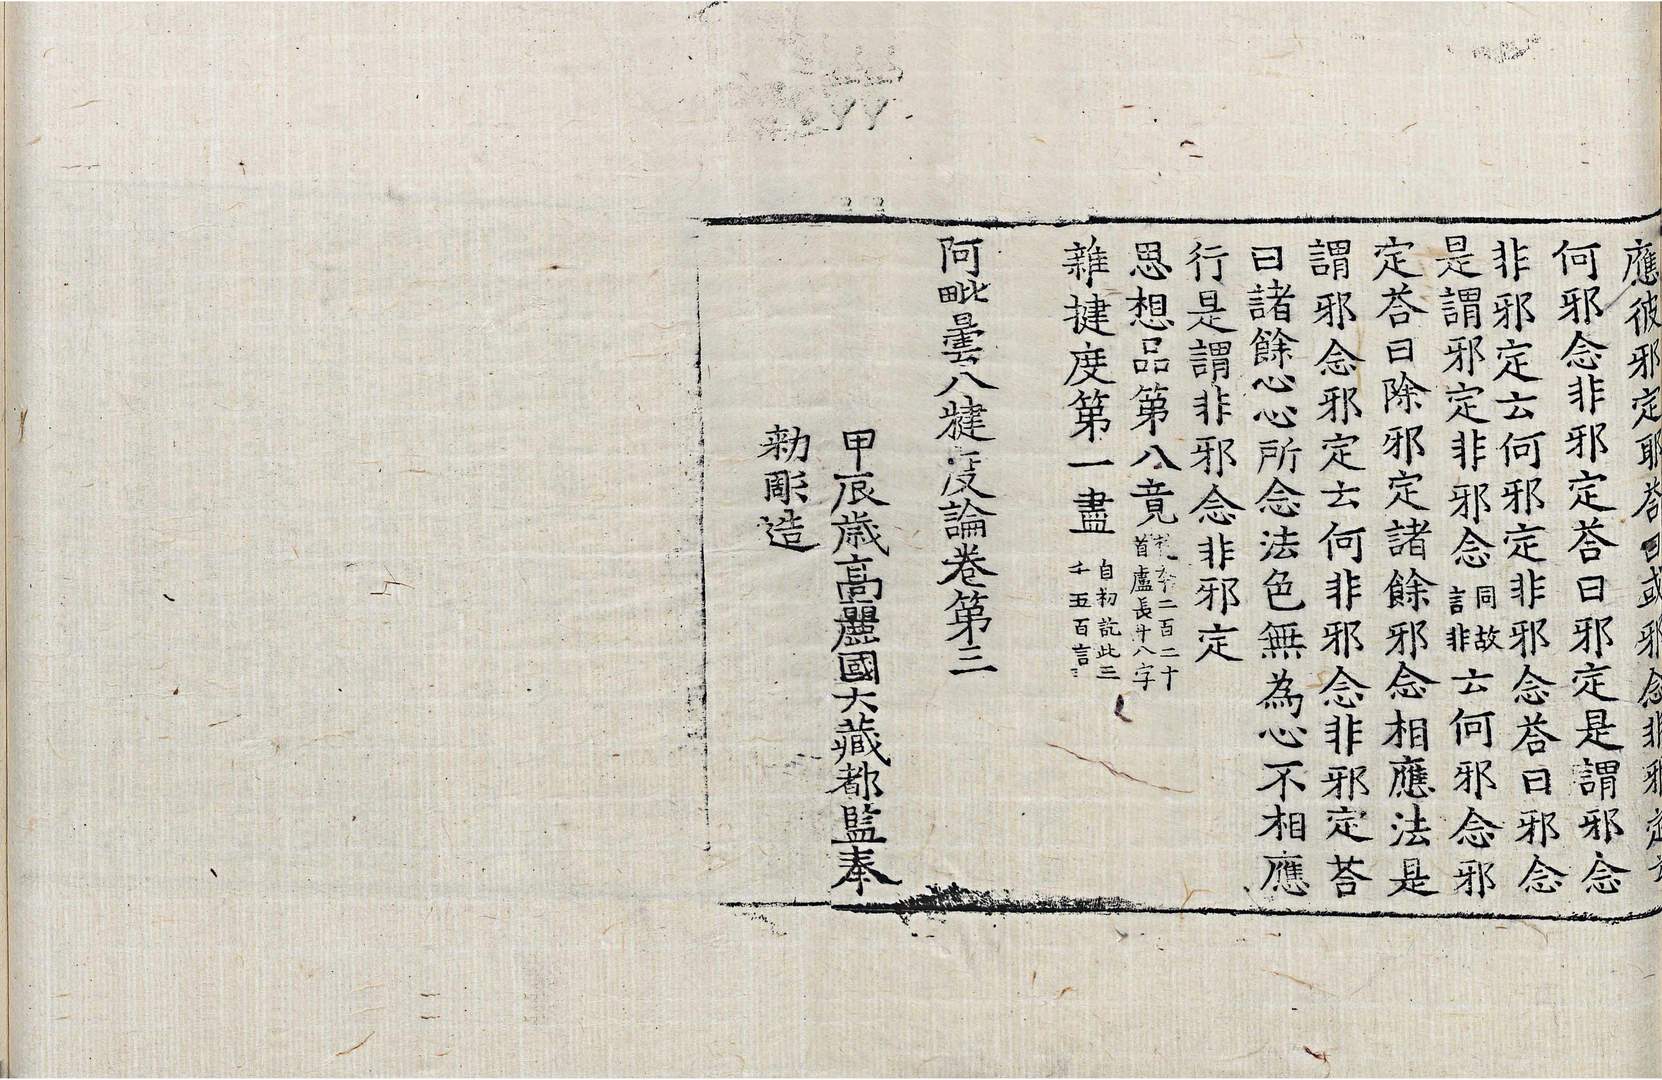 應彼邪定耶荅曰或邪念非邪定云
何邪念非邪定荅曰邪定是謂邪念
非邪定云何邪定非邪念荅曰邪念
是謂邪定非邪念同故言非云何邪念邪
定荅曰除邪定諸餘邪念相應法是
謂邪念邪定云何非邪念非邪定荅
曰諸餘心心所念法色無為心不相應
行是謂非邪念非邪定
思想品第八竟二百二十首盧長十八字
雜揵度第一盡自初訖此三千五百言
阿毗曇八犍度論卷第三
甲辰歲高麗國大藏都監奉
勑彫造